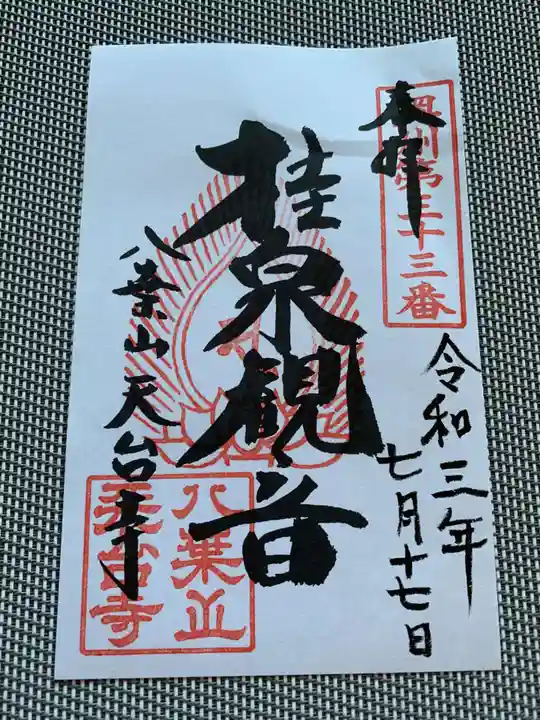 奉拝
奥州第三十三番
令和三年
七月十七日
桂泉観音
八葉山天台寺
八葉山
天台寺